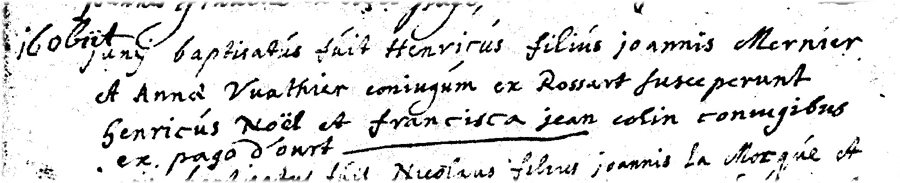 16 obijt
junij baptisatus fuit Henricus filius joannis Mernier
et Annæ Vuathier coniugum ex Rossart susceperunt
henricus Noël et francisca jean colin coniugibus
ex pago d'ourt
baptisatus fuit Nicolaus filius joannis la Mocque et